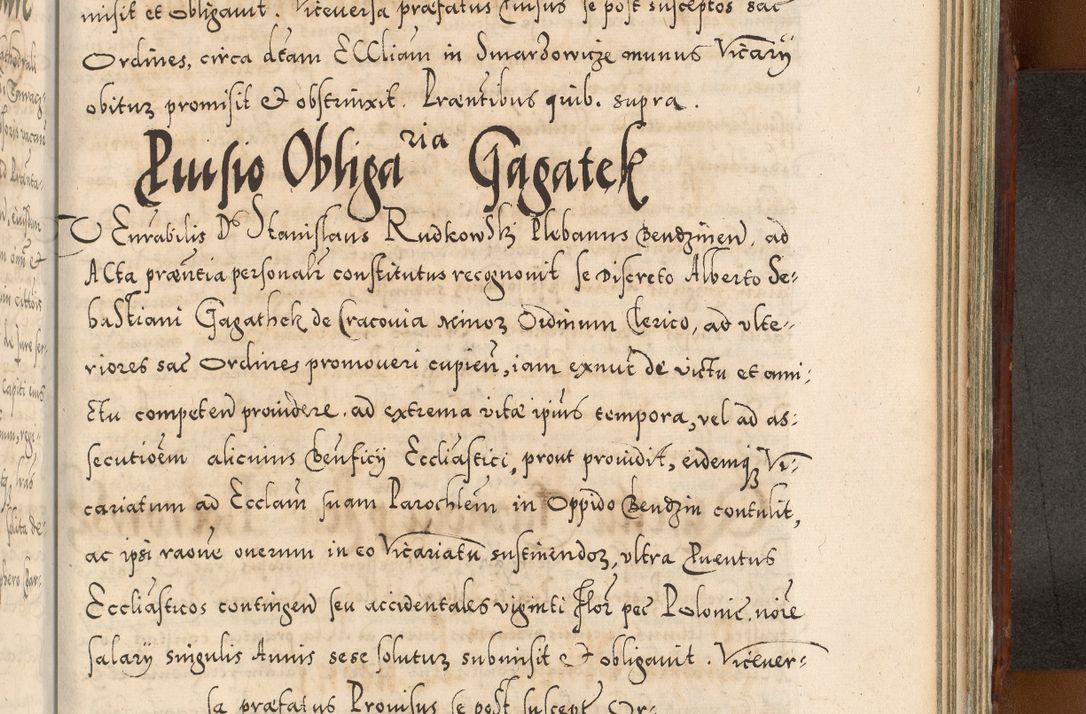 misit et obligavit. Viceversa præfatus Pvisus se post susceptos sac
Ordines, circa dtam ECCliam in Smardzowicze munus Vicarÿ
obitur promisit et obstrinxit. Præntibus quib. supra.
Pvisio Obligaria Gagatek
VEnrabilis Ds Stanislaus Rudkowski Plebanus Bendzinen, ad
ACta præntia personalr constitutus recognovit se Discreto Alberto Se-
bastiani Gagathek de Cracovia Minoz Ordinum Clerico, ad ulte-
riores sac Ordines promoveri cupien, iam exnut de victu et ami-
ctu competen providere. ad extrema vitæ ipius tempora, vel ad as-
secutioem alicuius Benficÿ Ecclastici, prout providit, eidemq Vi-
cariatum ad Ecclam suam Parochlem in Oppido Bendzin contulit,
ac ipsi raone onerum in eo Vicariatu sustinendoz, ultra Pventus
Ecclasticos contingen seu accidentales viginti Flor pec Polonic. noie
salarÿ singulis Annis sese soluturz submisit et obligavit. Vicever-
sa præfatus Provisus se post suscept Or-